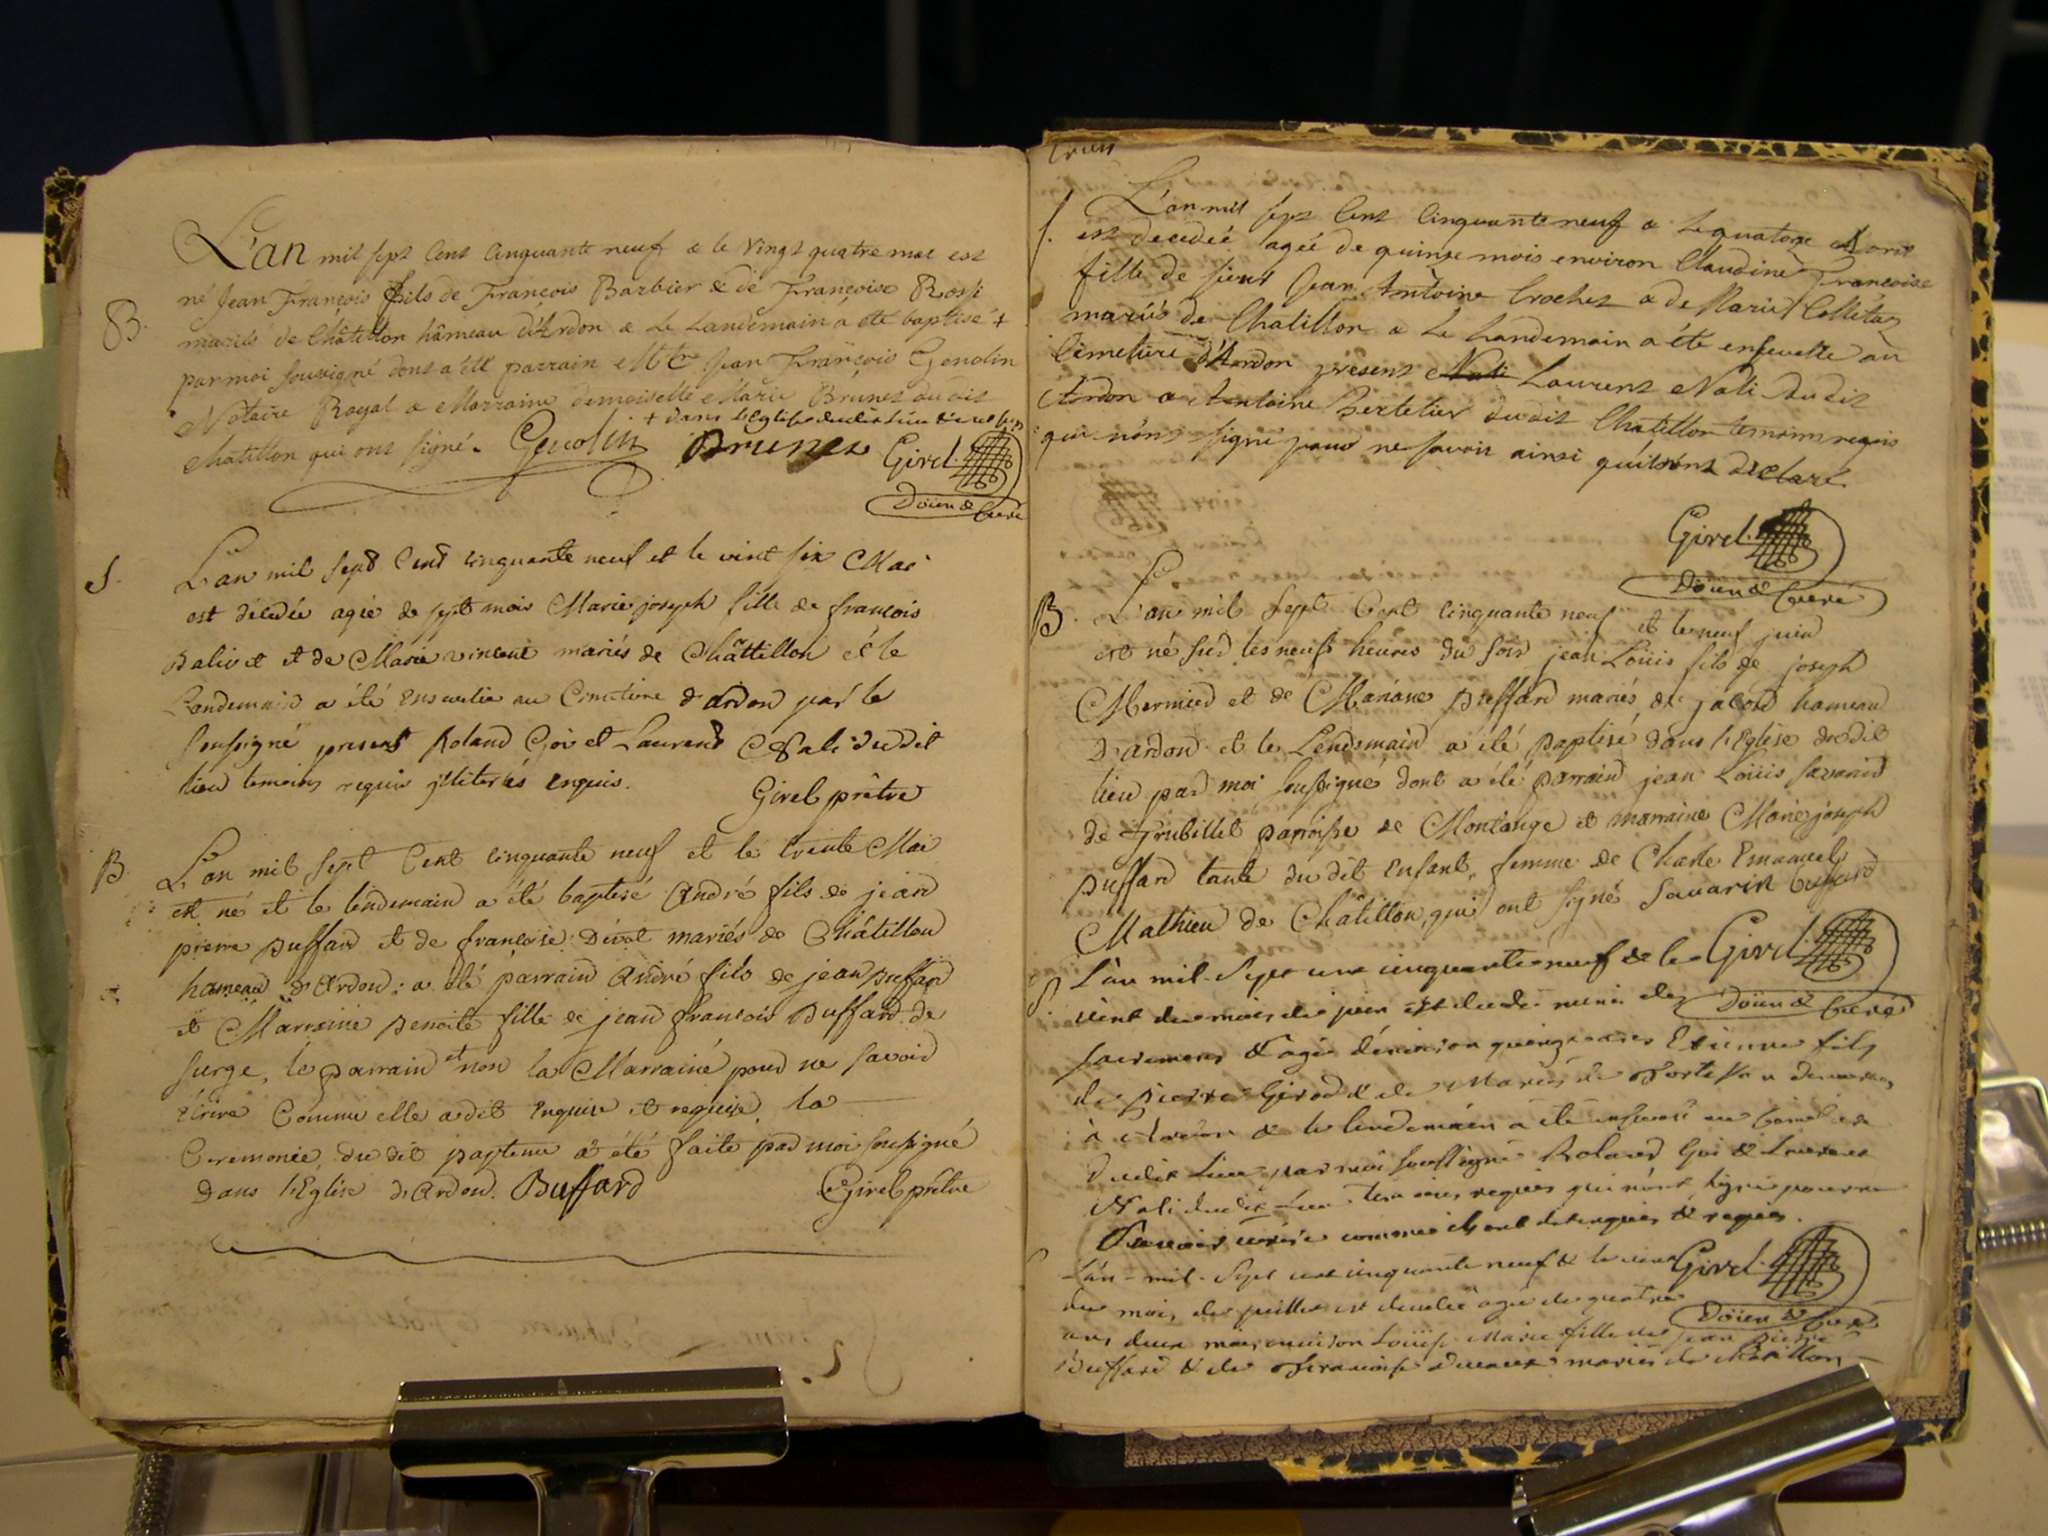 L'an mil sept Cent Cinquante neuf & le vingt quatre mai est
B. né Jean François fils de François Barbier & de Françoise Rosse
mariés de Châtillon hâmeau d'Ardon & Le Landemain a été baptisé +
par moi soussigné dont a été parrain Mtre Jean François Genolin
Notaire Royal & Marraine demoiselle Marie Brunet du dit
+ dans l'Eglise du dit lieu
Chatillon qui ont signé. Genolin Brunet Girel
Doïen & Curé
S. L'an mil sept Cent cinquante neuf et le vint six Mai
est décédée agée de sept mois Marie joseph fille de françois
Balivet et de Marie vincent mariés de Châttillon et le
Landemain a été ensevelie au Cimetiere d'ardon par le
soussigné present Roland Goi et Laurent Nali du dit
lieu temoins requis illiterés enquis.
Girel prêtre
B. L'an mil sept Cent cinquante neuf et le trente Mai
est né et le lendemain a été baptisé André fils de jean
pierre Buffard et de françoise Dévot mariés de Châtillon
hameau d'Ardon: a été parrain André fils de jean Buffard
et Marraine Benoite fille de jean françois Buffard de
surge, le parrain et non la Marraine pour ne savoir
écrire Comme elle a dit enquise et requise, la
Ceremonie du dit bapteme a été faite par moi soussigné
Dans l'Eglise d'Ardon. Buffard Girel prêtre
S. L'an mil sept Cent Cinquante neuf & le quatorze Avril
est decedeé ageé de quinse mois environ Claudine Françoise
fille de sieur Jean Antoine Crochet & de Marie Colletaz
mariés de Chatillon & Le Landemain a été ensevelie au
Cimetiere d'Ardon présent Laurent Nali du dit
Ardon & Antoine Bertetier du dit Chatillon temoins requis
qui n'ont signé pour ne savoir ainsi qu'ils ont déclaré.
Girel
Doïen & Curé
B. L'an mil sept Cent cinquante neuf et le neuf juin
est né sur les neufs heures du soir jean Loüis fils de joseph
Mermied et de Mariane Buffard mariés de jacour hameau
d'ardon et le Lendemain a été baptisé dans l'Eglise du dit
lieu par moi soussigné dont a été parrain jean Loüis savarin
de Grubillet parroisse de Montange et marraine Marie joseph
Buffard tante du dit Enfant, femme de Charle Emanuel
Mathieu de Châtillon, qui ont signé Savarin Buffard
S. L'an mil Sept cent cinquante neuf & le Girel
vint du mois de juin est decedé muni des Doïen & Curé
sacremens & agé d'environ quinze ans Etienne fils
de pierre Girod & de
à Ardon & le lendemain a été enseveli au
du dit lieu par moi soussigné Roland Goi & Laurent
Nali du dit lieu temoins requis qui n'ont signé pour ne
savoir écrire comme ils ont dit enquis & requis.
S. L'an mil Sept cent cinquante neuf & le Girel
du mois de juillet est decedée agée de quatre Doïen & Curé
ans deux mois environ Loüise Marie fille de jean pierre
Buffard & de Françoise mariés de châtillon